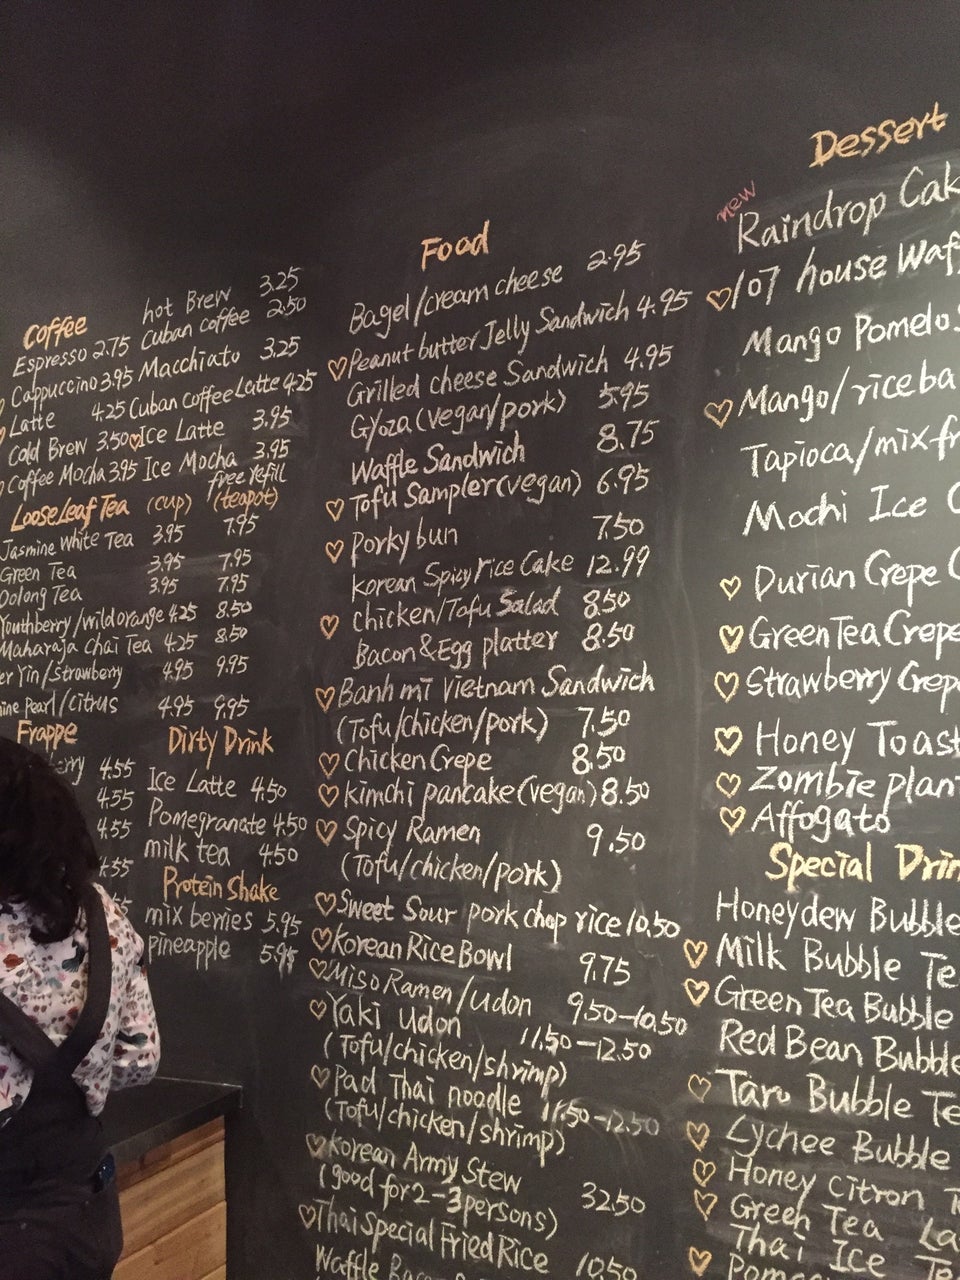 Coffee
Espresso 2.75
Cappuccino 3.95
Latte 4.25
Cold Brew 3.50
Coffee Mocha 3.95
hot Brew 3.25
Cuban coffee 2.50
Macchiato 3.25
Cuban coffee Latte 4.25
Ice Latte 3.95
Ice Mocha 3.95
free refill
Loose Leaf Tea (cup) (teapot)
Jasmine White Tea 3.95 7.95
Green Tea 3.95 7.95
Oolong Tea 3.95 7.95
Youthberry/wild orange 4.25 8.50
Maharaja Chai Tea 4.25 8.50
er Yin/Strawberry 4.95 9.95
ine Pearl/citrus 4.95 9.95
Frappe
erry 4.55
4.55
4.55
4.55
Dirty Drink
Ice Latte 4.50
Pomegranate 4.50
milk tea 4.50
Protein Shake
mix berries 5.95
pineapple 5.95
Food
Bagel/cream cheese 2.95
Peanut butter Jelly Sandwich 4.95
Grilled cheese Sandwich 4.95
Gyoza (vegan/pork) 5.95
Waffle Sandwich 8.75
Tofu Sampler (vegan) 6.95
Porky bun 7.50
Korean Spicy rice Cake 12.99
chicken/Tofu Salad 8.50
Bacon & Egg platter 8.50
Banh mi Vietnam Sandwich
(Tofu/chicken/pork) 7.50
Chicken Crepe 8.50
kimchi pancake (vegan) 8.50
Spicy Ramen 9.50
(Tofu/chicken/pork)
Sweet Sour pork chop rice 10.50
Korean Rice Bowl 9.75
Miso Ramen/udon 9.50-10.50
Yaki udon 11.50-12.50
(Tofu/chicken/shrimp)
Pad Thai noodle 11.50-12.50
(Tofu/chicken/shrimp)
Korean Army Stew
(good for 2-3 persons) 32.50
Thai Special Fried Rice 10.50
Waffle Bac
Dessert
new
Raindrop Cak
107 house Waf
Mango Pomelo
Mango/rice ba
Tapioca/mix fr
Mochi Ice C
Durian Crepe C
Green Tea Crepe
Strawberry Crep
Honey Toast
Zombie plan
Affogato
Special Drin
Honeydew Bubble
Milk Bubble Te
Green Tea Bubble
Red Bean Bubble
Taro Bubble Te
Lychee Bubble
Honey Citron T
Green Tea La
Thai Ice Te
Pome